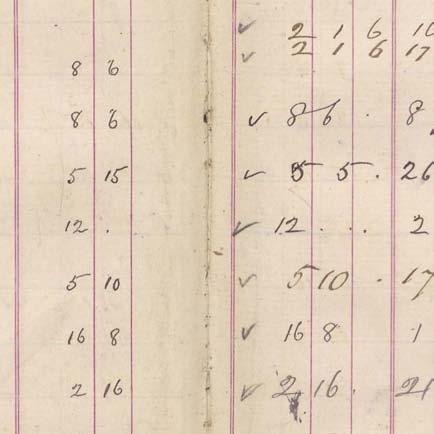 ✓ 2 1 6 10
✓ 2 1 6 17
8 6
8 6 ✓ 8 6 . 8
5 15 ✓ 5 5 . 26
12 . ✓ 12 . . . 2
5 10 ✓ 5 10 . 17
16 8 ✓ 16 8 1
2 16 ✓ 2 16 . 21